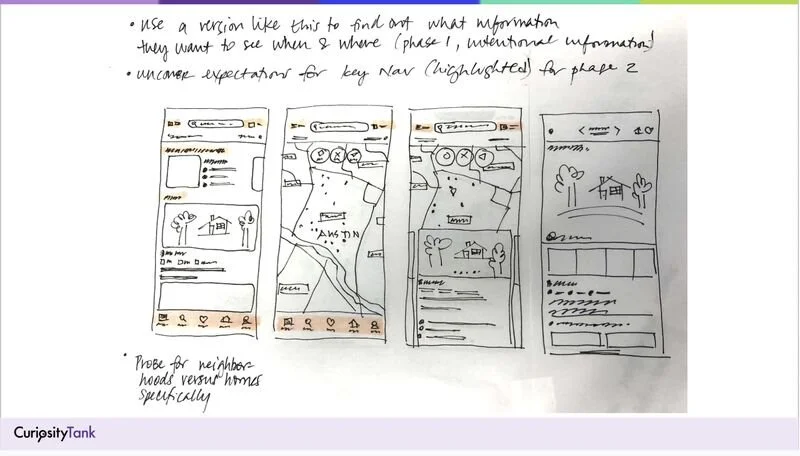 • use a version like this to find out what information
they want to see when & where (phase 1, intentional information)
• uncover expectations for key Nav (highlighted) for phase 2
AUSTIN
• Probe for neighbor-
hoods versus homes
specifically
CuriosityTank